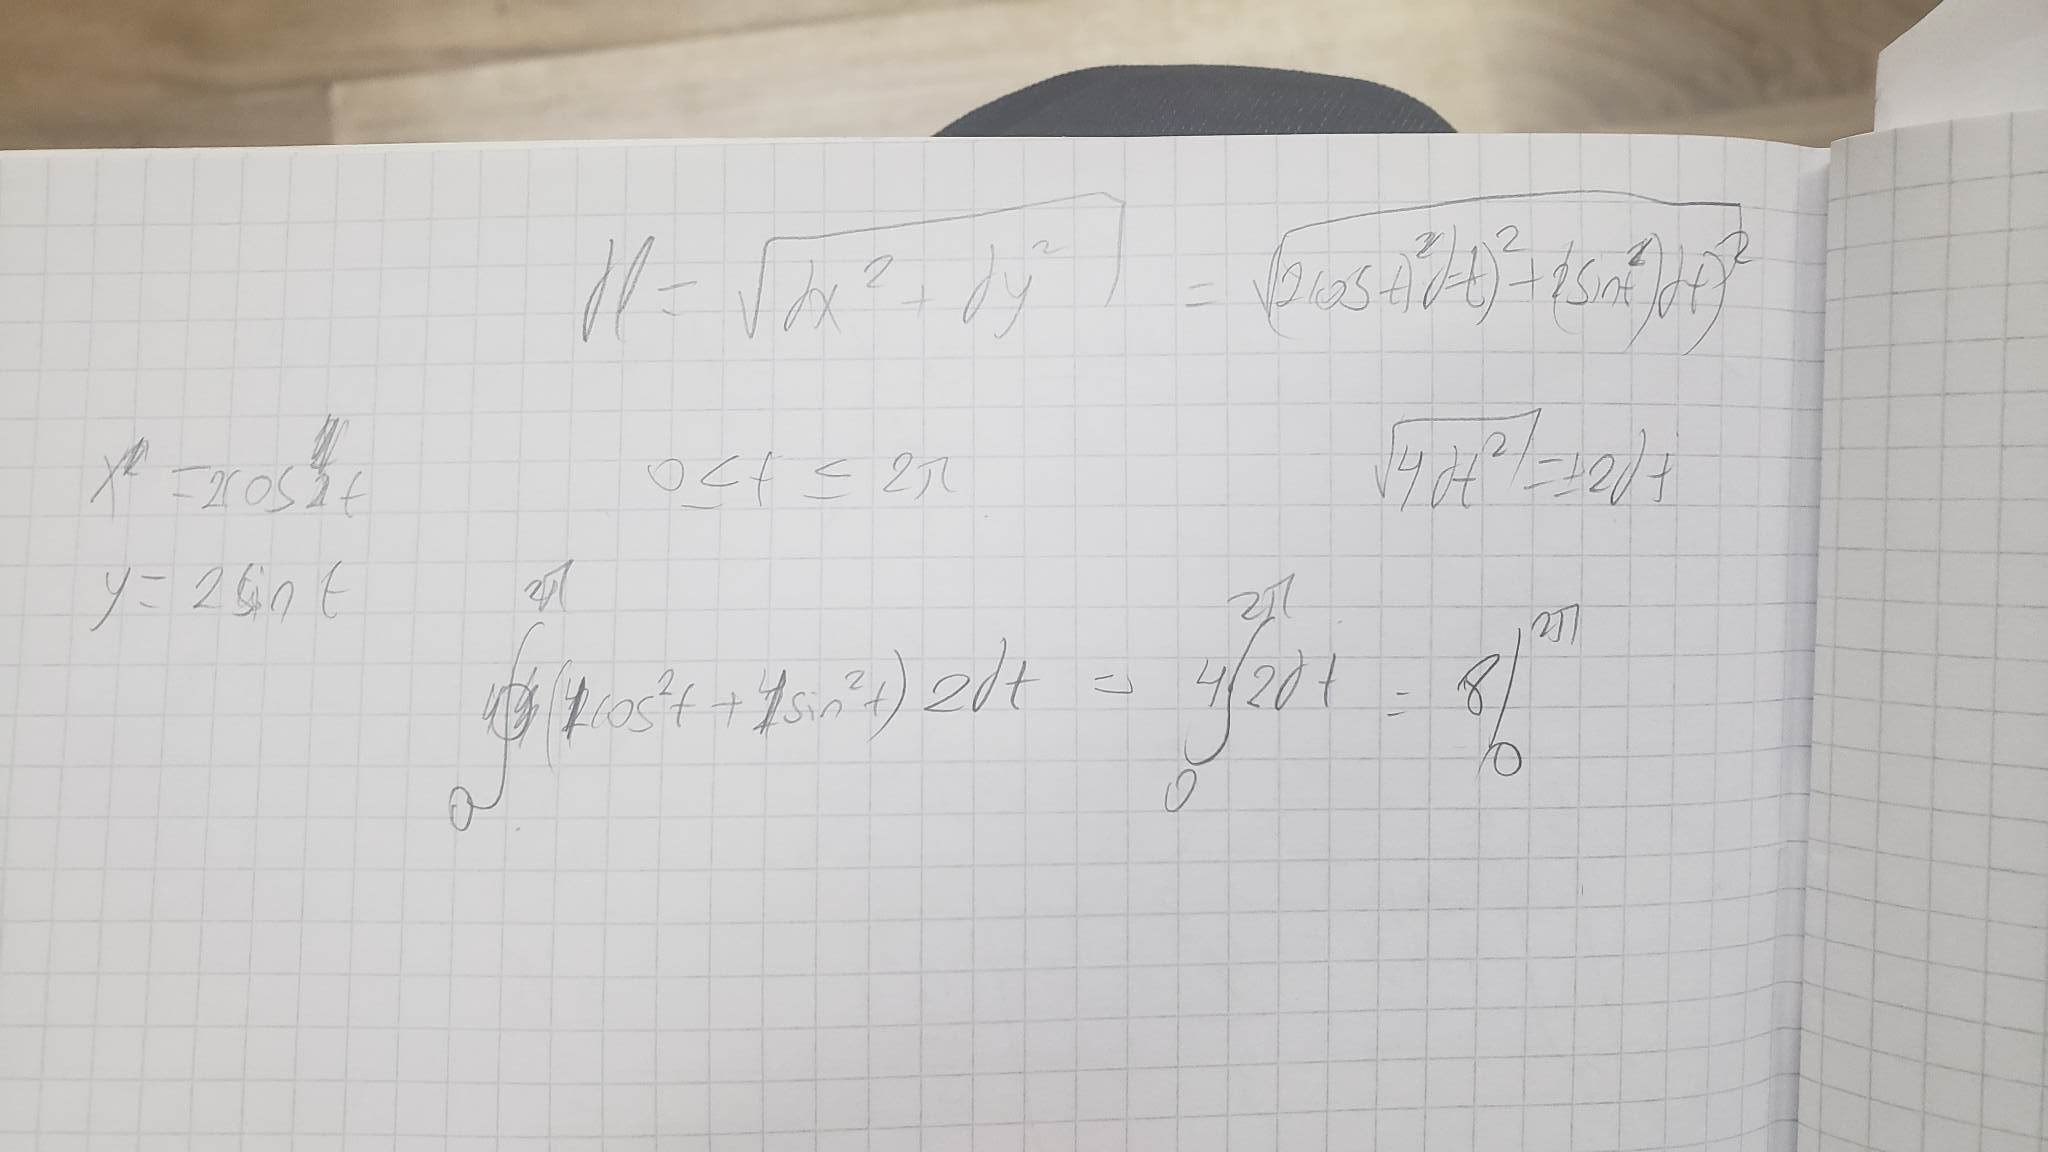 dl = √(dx² + dy²) = √((2cost)²dt)² + (2sint²)dt)²
x = 2cos t 0 ≤ t ≤ 2π √(4dt²) = ±2dt
y = 2sin t
∫₀^2π 4(cos²t + sin²t) 2dt = 4∫₀^2π 2dt = 8|₀^2π